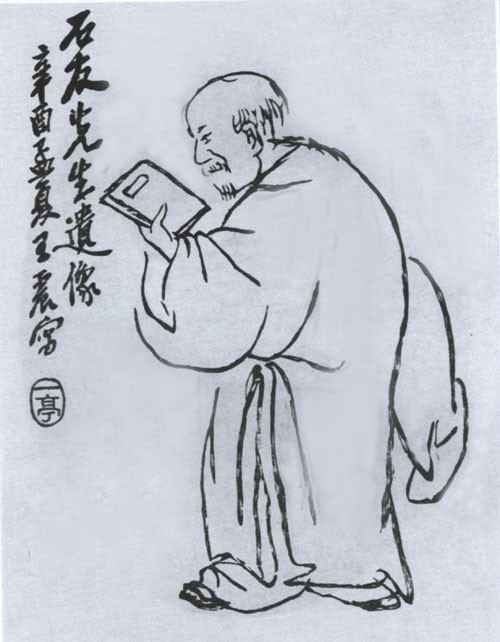 石友先生遺像
辛酉孟夏王震寫
一亭